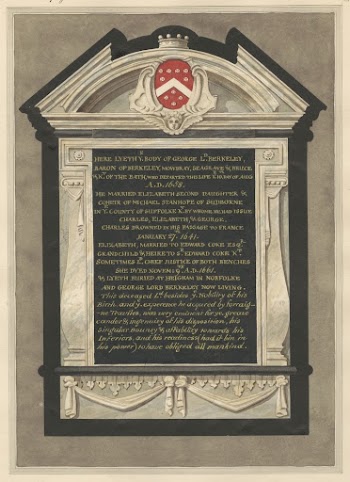 HERE LYETH Yᵉ BODY OF GEORGE Lᴰ BERKELEY,
BARON OF BERKELEY, MOWBRAY, SEAGRAVE & BRUCE,
& Kᵗ OF THE BATH, WHO DEPARTED THIS LIFE Yᵉ 10 DAY OF AUG
A.D. 1658.
HE MARRIED ELIZABETH SECOND DAUGHTER &
COHEIR OF MICHAEL STANHOPE OF SUDBORNE
IN Yᵉ COUNTY OF SUFFOLKE BY WHOM HE HAD ISSUE
CHARLES, ELIZABETH, & GEORGE.
CHARLES DROWNED IN HIS PASSAGE TO FRANCE
JANUARY 27. 1641.
ELIZABETH, MARRIED TO EDWARD COKE ESQʳ
GRANDCHILD & HEIRE TO Sʳ EDWARD COKE Kᵗ
SOMETIMES Lᴰ CHEIF JUSTICE OF BOTH BENCHES
SHE DYED NOVEMᴮ 9ᵗʰ A.D. 1661.
& LYETH BURIED AT IN NORFOLKE
AND GEORGE LORD BERKELEY NOW LIVING.
This deceased Lᵈ besides yᵉ Nobility of his
Birth, and yᵉ experience he acquired by forraigne
Travells, was very eminent for yᵉ greate
candor & ingenuity of his disposition, his
singular bounty & affability towards his
Inferiors, and his readiness (had it bin in
his power) to have obliged all mankind.